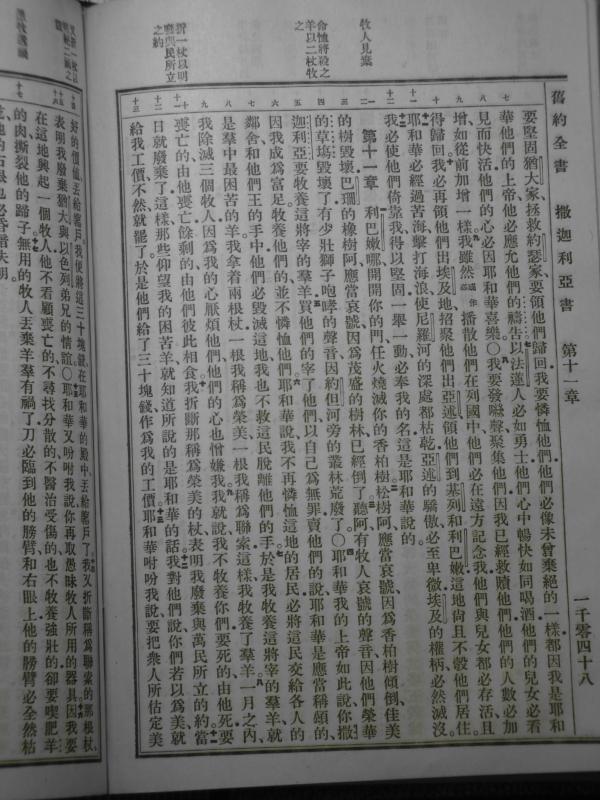 舊約全書　撒迦利亞書　第十一章　一千零四十八
要堅固猶大家、拯救約瑟家、要領他們歸回、我要憐恤他們、他們必像未曾棄絕的一樣、都因我是耶和
華他們的上帝、他必應允他們的禱告、以法蓮人必如勇士、他們心中暢快如同喝酒、他們的兒女必看
見而快活、他們的心必因耶和華喜樂。○我要發嘶聲聚集他們、因我已經救贖他們、他們的人數必加
增如從前加增一樣、我雖然播散他們在列國中、他們必在遠方記念我、他們與兒女都必存活且
得歸回、我必再領他們出埃及地、招聚他們出亞述、領他們到基列和利巴嫩、這地尚且不彀他們居住。
耶和華必經過苦海擊打海浪、使尼羅河的深處都枯乾、亞述的驕傲必至卑微、埃及的權柄必然滅沒。
我必使他們倚靠我得以堅固、一舉一動必奉我的名、這是耶和華說的。
第十一章　利巴嫩哪、開開你的門、任火燒滅你的香柏樹、松樹阿、應當哀號、因為香柏樹傾倒、佳美
的樹毀壞、巴珊的橡樹阿、應當哀號、因為茂盛的樹林已經倒了。聽阿、有牧人哀號的聲音、因他們榮華
的草場毀壞了、有少壯獅子咆哮的聲音、因約但河旁的叢林荒廢了。○耶和華我的上帝如此說、你撒
迦利亞要牧養這將宰的羣羊、買他們的宰了他們、以自己為無罪、賣他們的說、耶和華是應當稱頌的、
因我成為富足、牧養他們的、並不憐恤他們。耶和華說、我不再憐恤這地的居民、必將這民交給各人的
鄰舍和他們王的手中、他們必毀滅這地、我也不救這民脫離他們的手。於是我牧養這將宰的羣羊、就
是羣中最困苦的羊、我拿着兩根杖、一根我稱為榮美、一根我稱為聯索、這樣我牧養了羣羊。一月之內、
我除滅三個牧人、因為我的心厭煩他們、他們的心也憎嫌我。我就說、我不牧養你們、要死的由他死、要
喪亡的由他喪亡、餘剩的由他們彼此相食。我折斷那稱為榮美的杖、表明我廢棄與萬民所立的約。當
日就廢棄了、這樣、那些仰望我的困苦羊、就知道所說的是耶和華的話。我對他們說、你們若以為美、就
給我工價、不然就罷了、於是他們給了三十塊錢、作為我的工價。耶和華吩咐我說、要把衆人所估定美
好的價値、丟給窰戶、我便將這三十塊錢、在耶和華的殿中丟給窰戶了。我又折斷稱為聯索的那根杖、
表明我廢棄猶大與以色列弟兄的情誼。○耶和華又吩咐我說、你再取愚昧牧人所用的器具、因我要
在這地興起一個牧人、他不看顧喪亡的、不尋找分散的、不醫治受傷的、也不牧養強壯的、卻要喫肥羊
的肉、撕裂他的蹄子。無用的牧人丟棄羊羣有禍了、刀必臨到他的膀臂和右眼上、他的膀臂必全然枯
牧人見棄
命恤將殺之羊以二杖牧之
折一杖以明廢與民所立之約